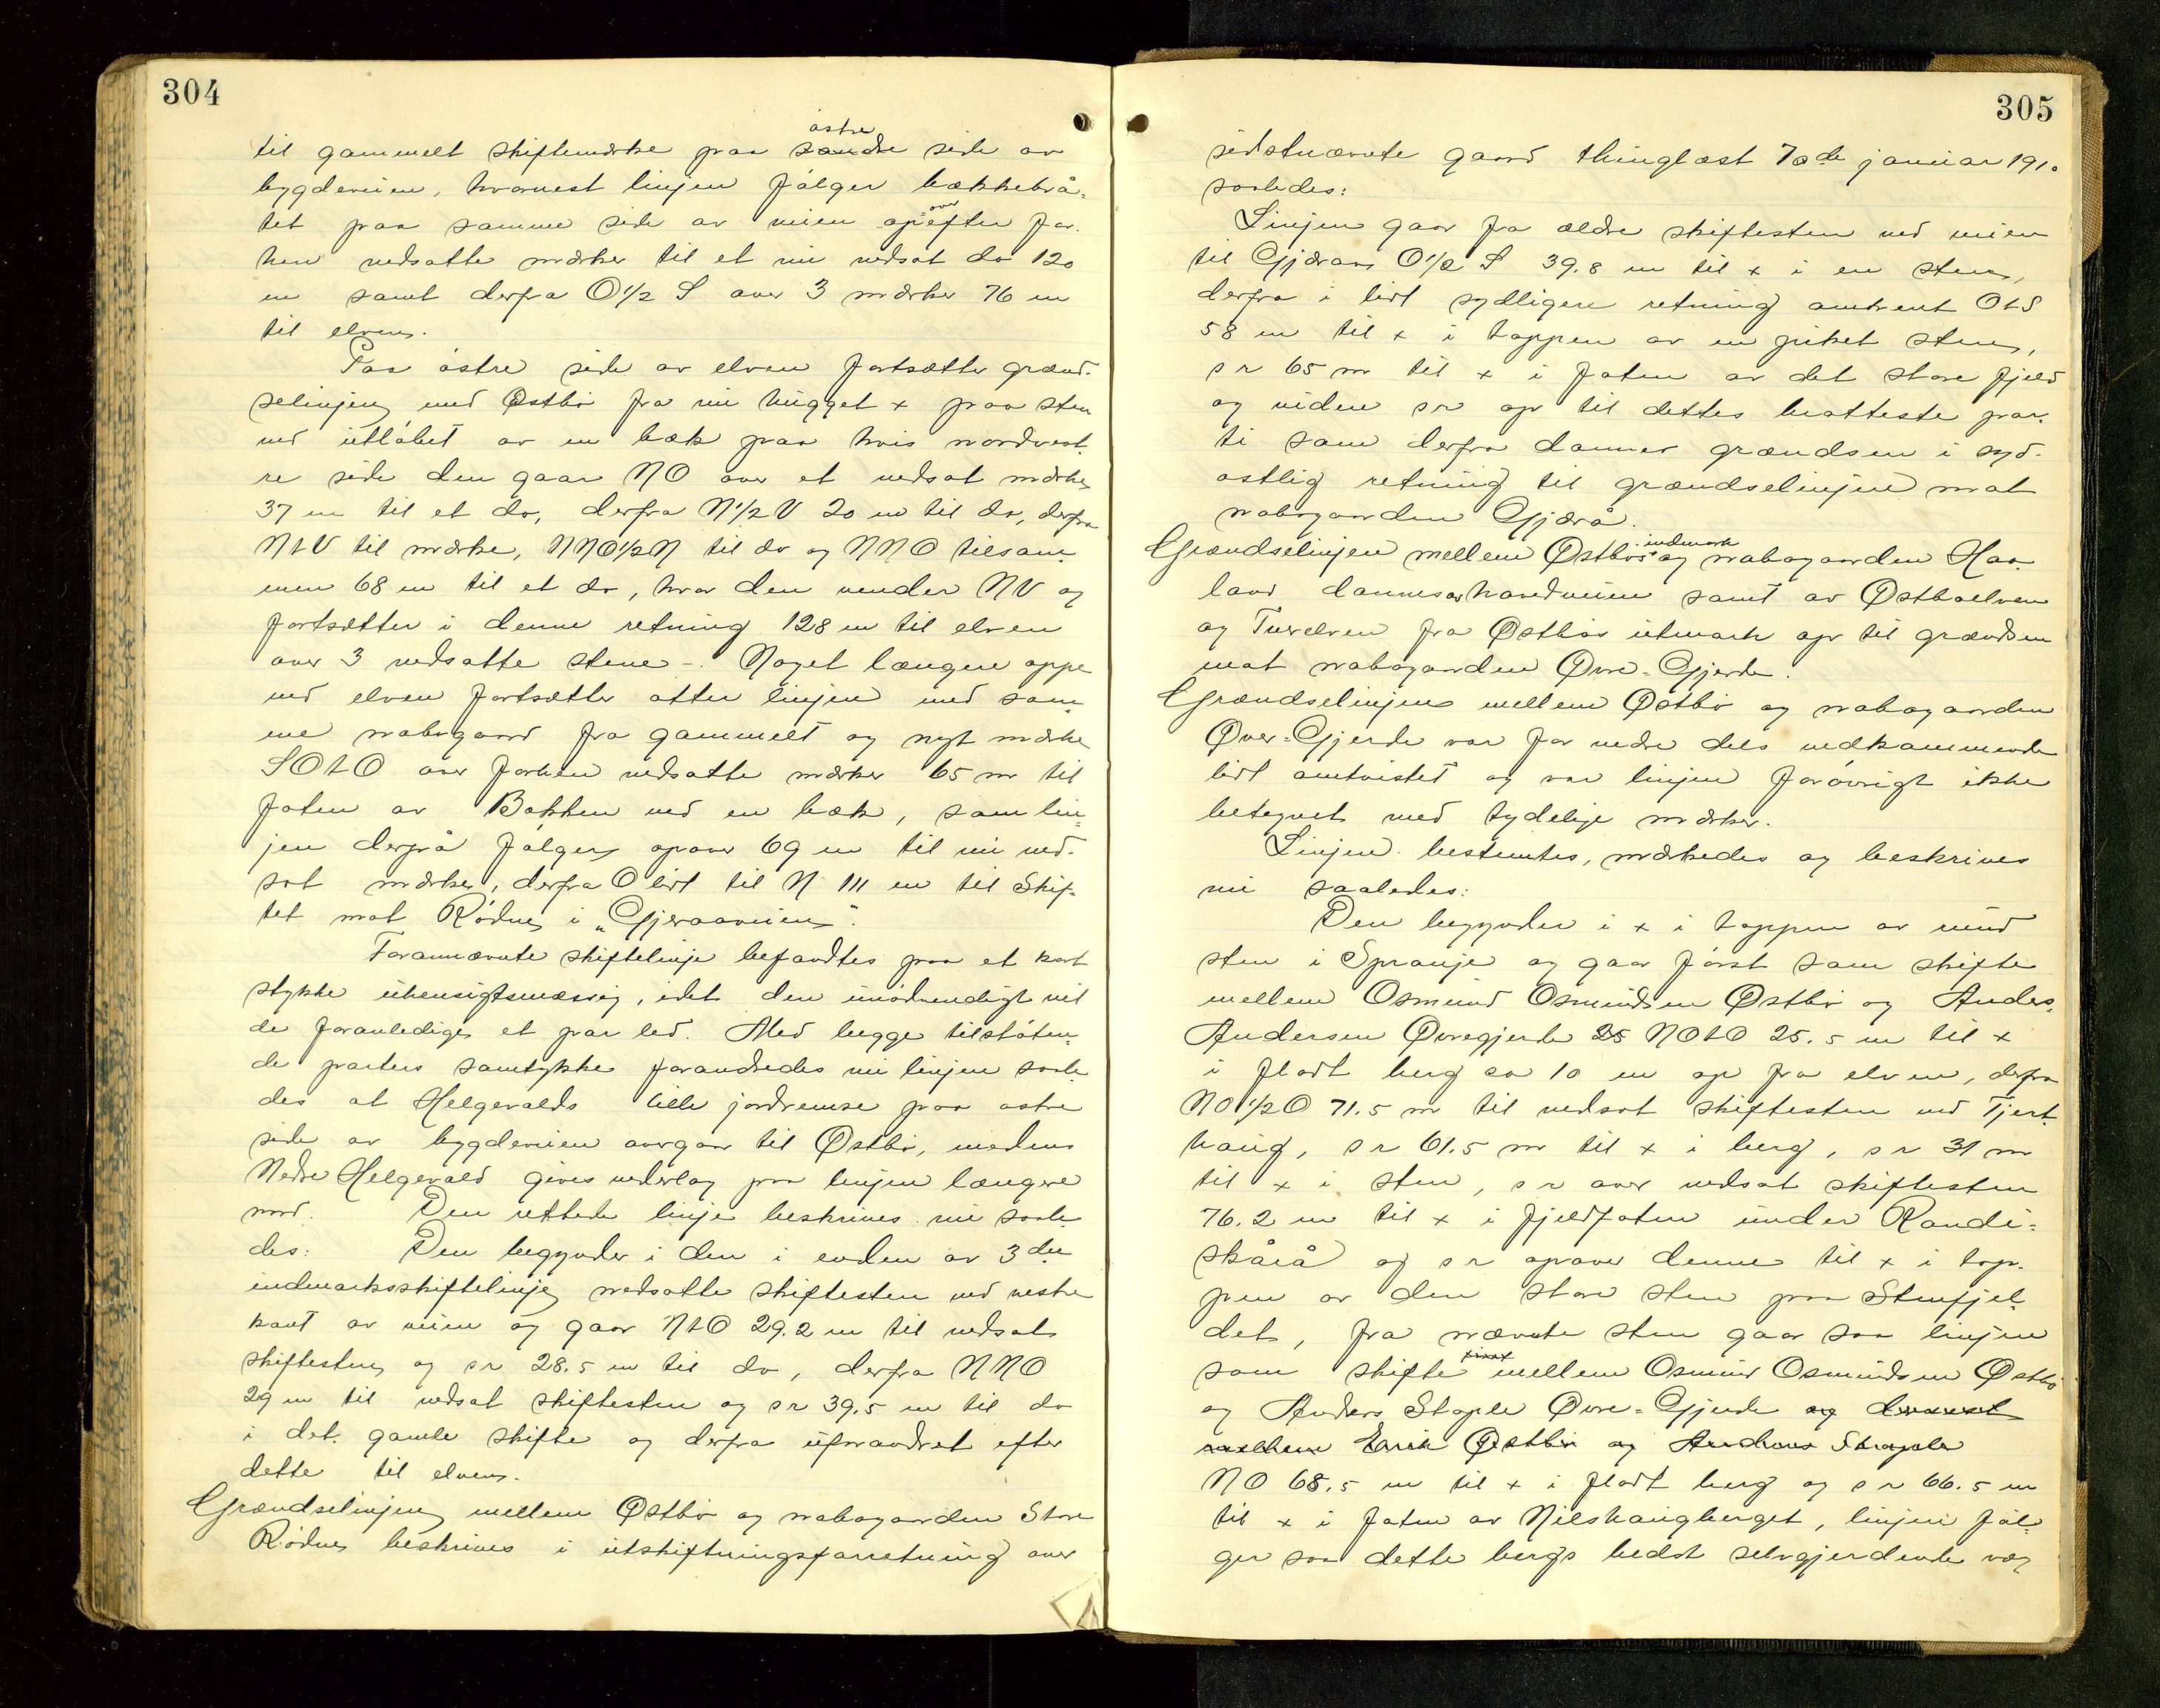 304
til gammelt skiftemærke paa søndre østre side av
bygdeveien, hvornest linjen følger bækkebrå-
tet paa samme side av veien op over efter for-
hen nedsatte mærker til et nu nedsat do 120
m samt derfra O½S over 3 mærker 76 m
til elven.
Paa østre side av elven fortsætter grænd-
selinjen med Østbø fra nu hugget x paa sten
ved utløbet av en bæk paa hvis nordvest-
re side den gaar NO over et nedsat mærke
37 m til et do, derfra N½V 20 m til do, derfra
NtV til mærke, NNO½N til do og NNO tilsam-
men 68 m til et do, hvor den vender NV og
fortsætter i denne retning 128 m til elven
over 3 nedsatte stene -. Noget længere oppe
ved elven fortsætter atter linjen med sam-
me nabogaard fra gammelt og nyt mærke
SOtO over forhen nedsatte mærker 65 m til
foten av Bakken ved en bæk, som lin-
jen derfra følger opover 69 m til nu ned-
sat mærke, derfra O lidt til N 111 m til Skif-
tet mot Rødne i „Gjeraaveien".
Forannævnte skiftelinje befandtes paa et kort
stykke uhensigtsmæssig, idet den unødvendigt vil-
de foranledige et par led. Med begge tilstøten-
de parters samtykke forandredes nu linjen saale-
des at Helgevolds lille jordremse paa østre
side av bygdeveien overgaar til Østbø, medens
Nedre Helgevold gives vederlag paa linjen længere
nord. Den rettede linje beskrives nu saale-
des: Den begynder i den i enden av 3die
indmarksskiftelinje nedsatte skiftesten ved vestre
kant av veien og gaar NtO 29.2 m til nedsat
skiftesten og s r 28.5 m til do, derfra NNO
29 m til nedsat skiftesten og s r 39.5 m til do
i det gamle skifte og derfra uforandret efter
dette til elven.
Grændselinjen mellem Østbø og nabogaarden Store
Rødne beskrives i utskiftningsforretning over
305
sidstnævnte gaard thinglæst 7de januar 1910
saaledes:
Linjen gaar fra ældre skiftesten ved veien
til Gjæraa O½S 39.8 m til x i en sten,
derfra i lidt sydligere retning omtrent OtS
58 m til x i toppen av en pikket sten,
s r 65 m til x i foten av det store fjeld
og videre s r op til dettes bratteste par-
ti som derfra danner grændsen i syd-
østlig retning til grændselinjen mot
nabogaarden Gjærå.
Grændselinjen mellem Østbøs indmark og nabogaarden Haa-
land dannes av hovedveien samt av Østbøelven
og Tverelven fra Østbøs utmark op til grændsen
mot nabogaarden Øvre-Gjerde.
Grændselinjen mellem Østbø og nabogaarden
Øvre-Gjerde var for nedre dels vedkommende
lidt omtvistet og var linjen forøvrigt ikke
betegnet med tydelige mærker.
Linjen bestemtes, mærkedes og beskrives
nu saaledes:
Den begynder i x i toppen av rund
sten i Spranje og gaar først som skifte
mellem Osmund Osmundsen Østbø og Anders
Andersen Øvregjerde 25 NOtO 25.5 m til x
i fladt berg ca 10 m op fra elven, derfra
NO½O 71.5 m til nedsat skiftesten ved Tjert-
haug, s r 61.5 m til x i berg, s r 31 m
til x i sten, s r over nedsat skiftesten
76.2 m til x i fjeldfoten under Randi-
skårå og s r opover denne til x i top-
pen av den store sten paa Stenfjel-
det, fra nævnte sten gaar saa linjen
som skifte mellem Osmund Osmundsen Østbø
og Anders Stople Øvre-Gjerde og dernæst
mellem Erik Østbø og Andreas Stople
NO 68.5 m til x i fladt berg og s r 66.5 m
til x i foten av Nilshaugberget, linjen føl-
ger saa dette bergs bedst selvgjerdende væg